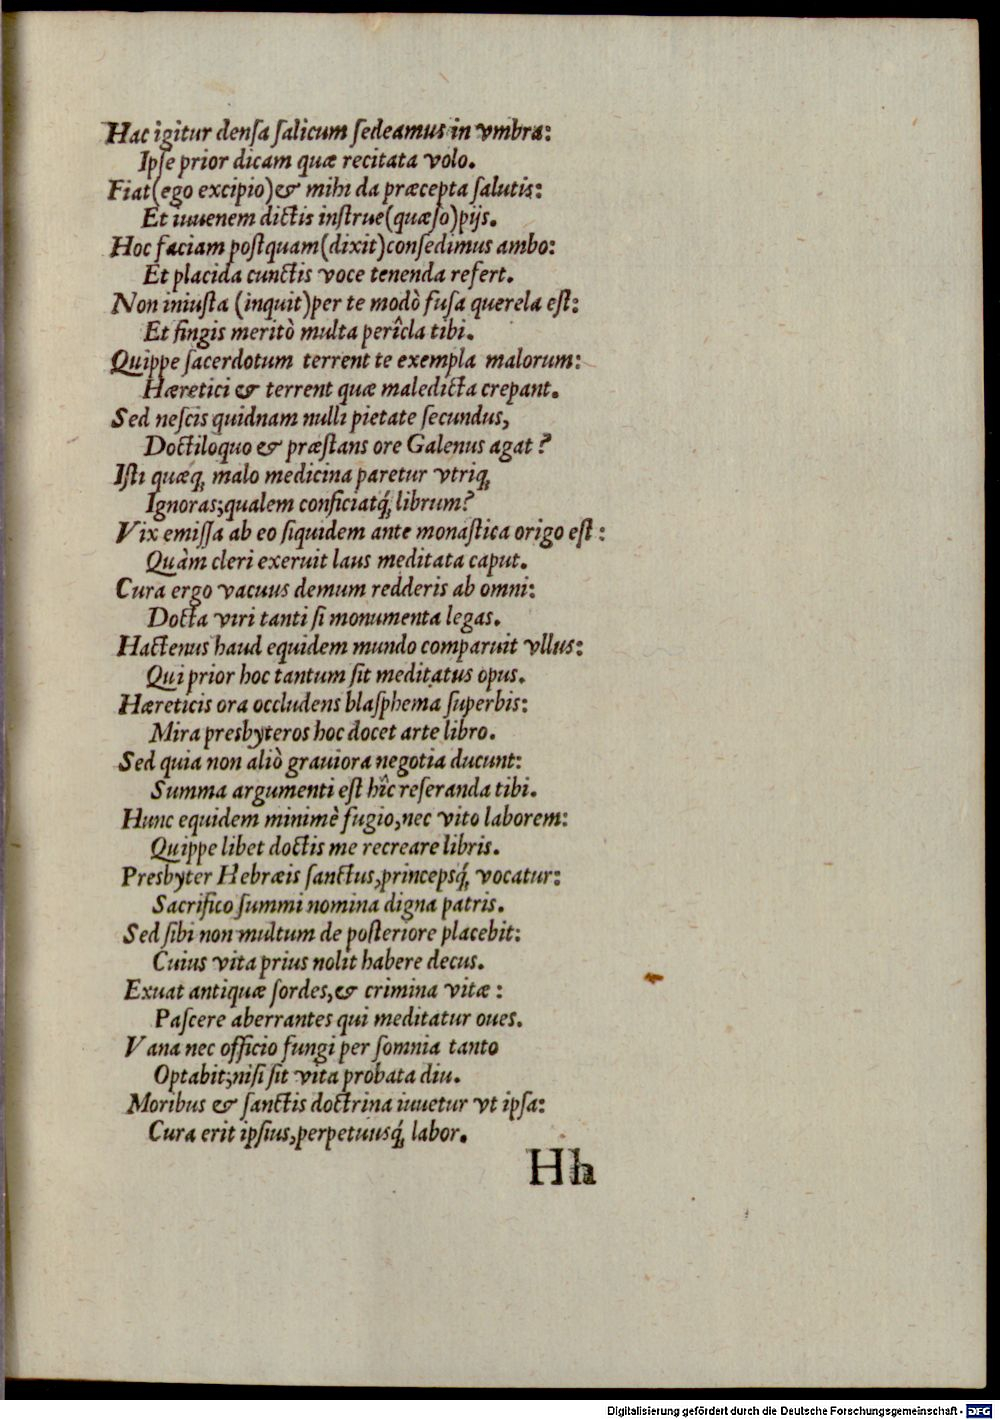 Hac igitur denſa ſalicum ſedeamus in vmbra:
Ipſe prior dicam quæ recitata volo.
Fiat(ego excipio)& mihi da præcepta ſalutis:
Et iuuenem dictis inſtrue(quæſo)pijs.
Hoc faciam poſtquam(dixit)conſedimus ambo:
Et placida cunctis voce tenenda refert.
Non iniuſta (inquit)per te modò fuſa querela eſt:
Et fingis meritò multa perîcla tibi.
Quippe ſacerdotum terrent te exempla malorum:
Hæretici & terrent quæ maledicta crepant.
Sed neſcis quidnam nulli pietate ſecundus,
Doctiloquo & præſtans ore Galenus agat?
Iſti quæq; malo medicina paretur vtriq;
Ignoras;qualem conficiatq́; librum?
Vix emiſſa ab eo ſiquidem ante monaſtica origo eſt:
Quàm cleri exeruit laus meditata caput.
Cura ergo vacuus demum redderis ab omni:
Docta viri tanti ſi monumenta legas.
Hactenus haud equidem mundo comparuit vllus:
Qui prior hoc tantum ſit meditatus opus.
Hæreticis ora occludens blaſphema ſuperbis:
Mira presbyteros hoc docet arte libro.
Sed quia non aliò grauiora negotia ducunt:
Summa argumenti eſt hîc referanda tibi.
Hunc equidem minimè fugio,nec vito laborem:
Quippe libet doctis me recreare libris.
Presbyter Hebræis ſanctus,princepsq́; vocatur:
Sacrifico ſummi nomina digna patris.
Sed ſibi non multum de poſteriore placebit:
Cuius vita prius nolit habere decus.
Exuat antiquæ ſordes,& crimina vitæ:
Paſcere aberrantes qui meditatur oues.
Vana nec officio fungi per ſomnia tanto
Optabit;niſi ſit vita probata diu.
Moribus & ſanctis doctrina iuuetur vt ipſa:
Cura erit ipſius,perpetuusq́; labor.
Hh
Digitalisierung gefördert durch die Deutsche Forschungsgemeinschaft - DFG